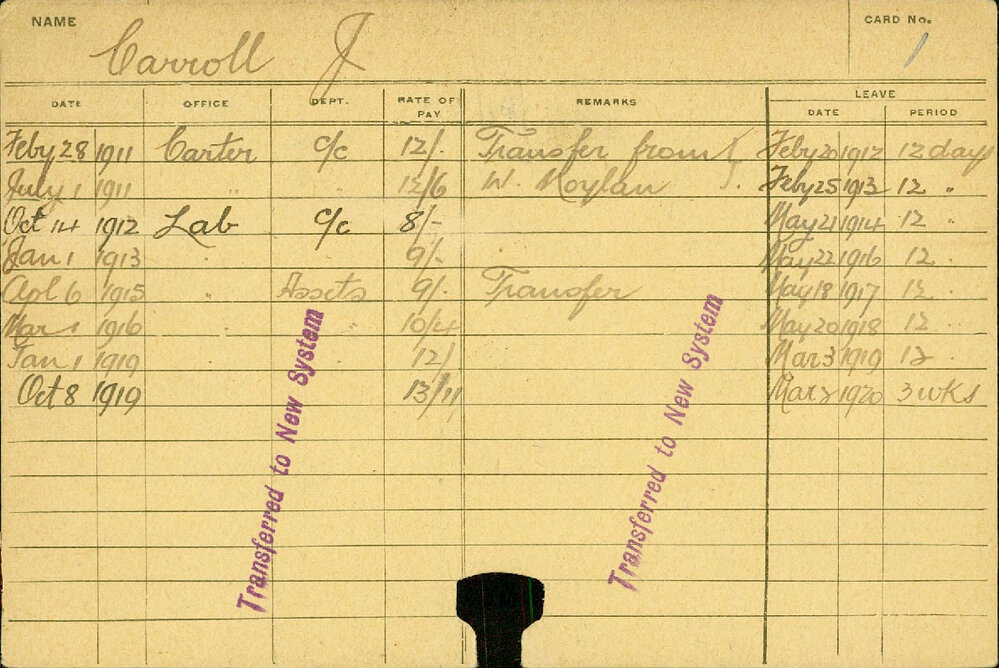 NAME CARD No.
Carroll J 1
DATE OFFICE DEPT. RATE OF PAY REMARKS LEAVE
DATE PERIOD
Feby 28 1911 Carter c/c 12/- Transfer from Feby 20 1912 12 days
July 1 1911 " " 12/6 W. Moylan Feby 25 1913 12 "
Oct 14 1912 Lab c/c 8/- May 21 1914 12 "
Jan 1 1913 9/- May 22 1916 12 "
Apl 6 1915 " Assets 9/- Transfer May 18 1917 12 "
Mar 1 1916 " " 10/4 May 20 1918 12 "
Jan 1 1919 12/ Mar 3 1919 12 "
Oct 8 1919 13/11 Mar 1920 3 wks
Transferred to New System
Transferred to New System